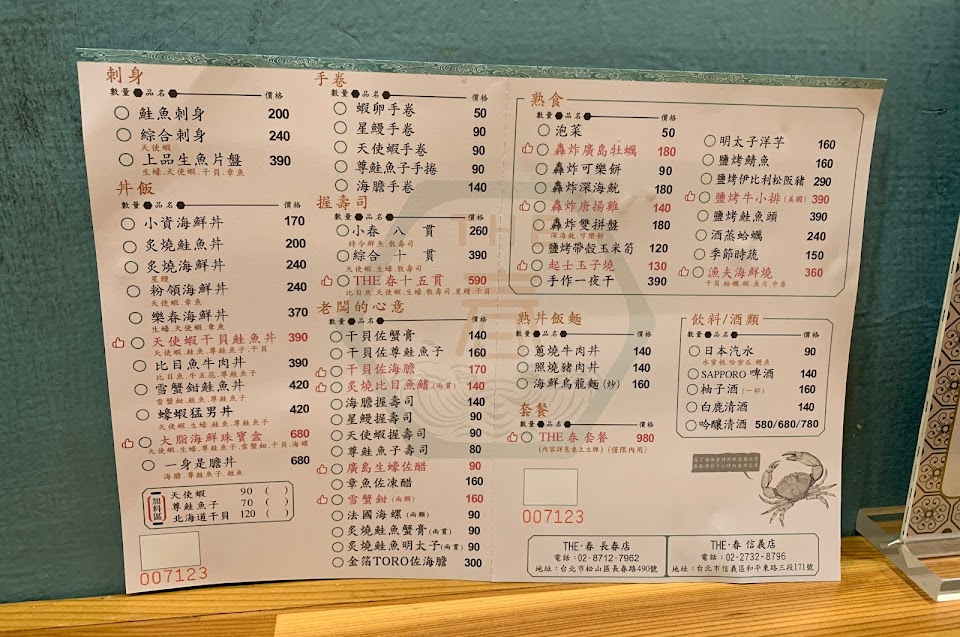 刺身
數量 品名 價格
鮭魚刺身 200
綜合刺身 240
天使蝦
上品生魚片盤 390
生蠔.天使蝦.干貝.章魚
丼飯
數量 品名 價格
小資海鮮丼 170
炙燒鮭魚丼 200
炙燒海鮮丼 240
星鰻
粉領海鮮丼 240
天使蝦.章魚
樂春海鮮丼 370
生蠔.天使蝦.章魚
天使蝦干貝鮭魚丼 390
天使蝦.鮭魚.尊鮭魚子.干貝
比目魚牛肉丼 390
比目魚.牛五花.尊鮭魚子
雪蟹鉗鮭魚丼 420
雪蟹鉗.鮭魚.尊鮭魚子
蠔蝦猛男丼 420
天使蝦.生蠔.鮭魚.尊鮭魚子
大脂海鮮珠寶盒 680
天使蝦.生蠔.尊鮭魚子.雪蟹鉗.干貝.海膽
一身是膽丼 680
海膽.尊鮭魚子.鮭魚
加料區
天使蝦 90 ( )
尊鮭魚子 70 ( )
北海道干貝 120 ( )
007123
手卷
數量 品名 價格
蝦卵手卷 50
星鰻手卷 90
天使蝦手卷 90
尊鮭魚子手捲 90
海膽手卷 140
握壽司
數量 品名 價格
小春 八 貫 260
時令鮮魚.散壽司
綜合 十 貫 390
天使蝦.生蠔.散壽司
THE 春十五貫 590
比目魚.天使蝦.生蠔.散壽司.星鰻.干貝
老闆的心意
數量 品名 價格
干貝佐蟹膏 140
干貝佐尊鮭魚子 160
干貝佐海膽 170
炙燒比目魚鰭(兩貫) 140
海膽握壽司 140
星鰻握壽司 90
天使蝦握壽司 90
尊鮭魚子壽司 80
廣島生蠔佐醋 90
章魚佐凍醋 160
雪蟹鉗(兩顆) 160
法國海螺(兩顆) 90
炙燒鮭魚蟹膏(兩貫) 90
炙燒鮭魚明太子(兩貫) 90
金箔TORO佐海膽 300
熟食
數量 品名 價格
泡菜 50
轟炸廣島牡蠣 180
轟炸可樂餅 90
轟炸深海魷 180
轟炸唐揚雞 140
轟炸雙拼盤 180
深海魷.可樂餅
鹽烤帶殼玉米筍 120
起士玉子燒 130
手作一夜干 390
明太子洋芋 160
鹽烤鯖魚 160
鹽烤伊比利松阪豬 290
鹽烤牛小排(美國) 390
鹽烤鮭魚頭 390
酒蒸蛤蠣 240
季節時蔬 150
漁夫海鮮燒 360
干貝.蛤蠣.蝦.魚片.中卷
熟丼飯麵
數量 品名 價格
蔥燒牛肉丼 140
照燒豬肉丼 140
海鮮烏龍麵(炒) 160
套餐
數量 品名 價格
THE 春 套餐 980
(內容詳見桌上立牌) (僅限內用)
007123
飲料/酒類
數量 品名 價格
日本汽水 90
水蜜桃.哈密瓜.彈珠
SAPPORO 啤酒 140
柚子酒(一杯) 160
白鹿清酒 140
吟釀清酒 580/680/780
THE·春 長春店
電話:02-8712-7962
地址:台北市松山區長春路490號
THE·春 信義店
電話:02-2732-8796
地址:台北市信義區和平東路三段171號